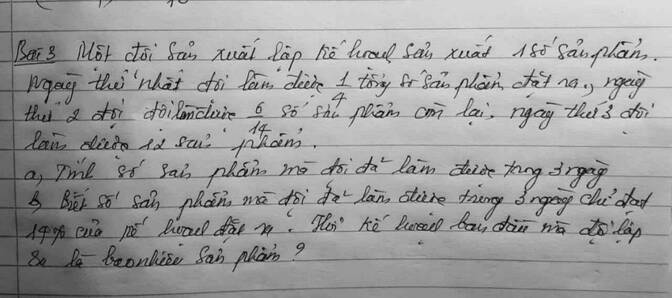 Bài 3 Một đội sản xuất lập kế hoạch sản xuất 1 số sản phẩm.
Ngày thứ nhất đội làm được 1/4 tổng số sản phẩm đặt ra, ngày
thứ 2 đội đội làm được 6/14 số sản phẩm còn lại, ngày thứ 3 đội
làm được 12 sản phẩm.
a, Tính số sản phẩm mà đội đã làm được trong 3 ngày
b, Biết số sản phẩm mà đội đã làm được trong 3 ngày chỉ đạt
của kế hoạch đặt ra. Hỏi kế hoạch ban đầu mà đội lập
ra là bao nhiêu sản phẩm?